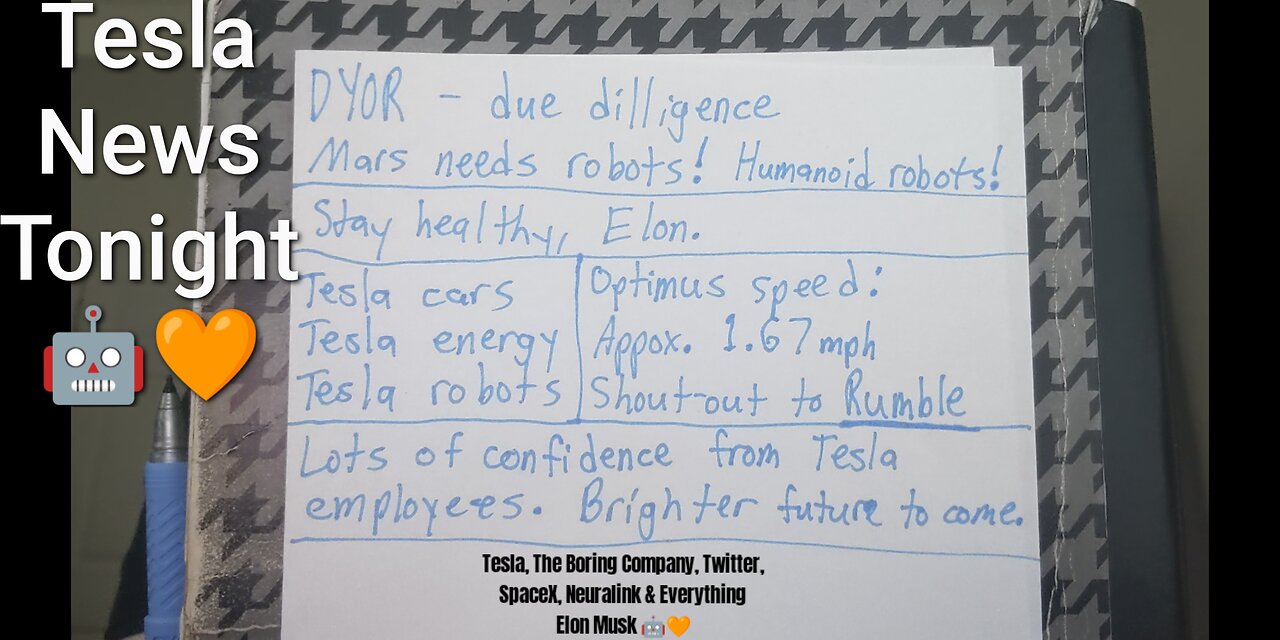 Tesla
News
Tonight
🤖🧡
DYOR - due dilligence
Mars needs robots! Humanoid robots!
Stay healthy, Elon.
Tesla cars
Tesla energy
Tesla robots
Optimus speed:
Appox. 1.67 mph
Shout-out to Rumble
Lots of confidence from Tesla
employees. Brighter future to come.
Tesla, The Boring Company, Twitter,
SpaceX, Neuralink & Everything
Elon Musk 🤖🧡